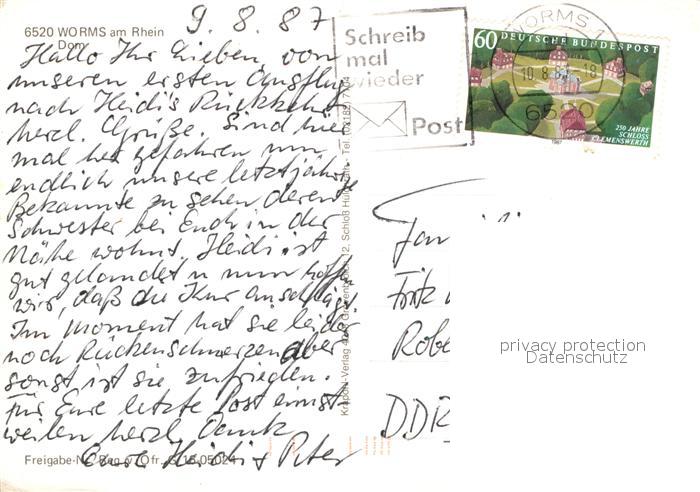 6520 WORMS am Rhein
Dom
9.8.87
Hallo Ihr Lieben, von
unseren ersten Ausflug
nach Heidis Rückkehr
herzl. Grüße. Sind hier
mal her gefahren um
endlich unsere letztjährige
Bekannte zu sehen deren
Schwester bei Euch in der
Nähe wohnt. Heidi ist
gut gelandet u nun hoffen
wir, daß die Kur anschlägt.
Im Moment hat sie leider
noch Rückenschmerzen aber
sonst ist sie zufrieden.
Für Eure letzte Post einst
weilen herzl. Dank
Eure Heidi + Peter
Freigabe-Nr. Reg. v. Ofr. G 16-05024
Schreib
mal
wieder
Post
WORMS 1
10.8. 18
6520
60 DEUTSCHE BUNDESPOST
250 JAHRE
SCHLOSS
CLEMENSWERTH
1987
Fam
Fritz
Robe
DDR
privacy protection
Datenschutz